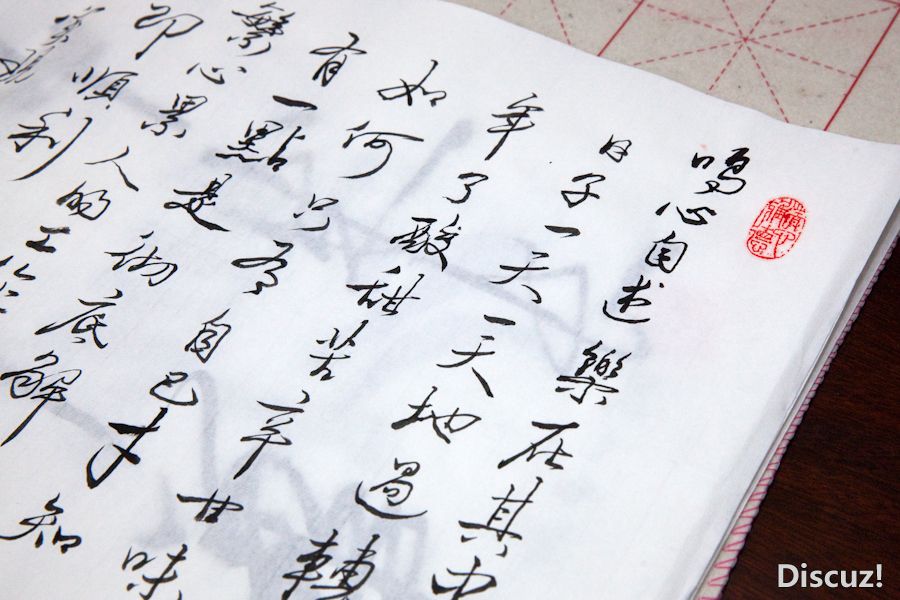 鳴心自述樂在其中
日子一天一天地過轉
年了酸甜苦辛甘味
如何只有自己才知
有一點是徹底解
繁心累人的工作
即順利
Discuz!